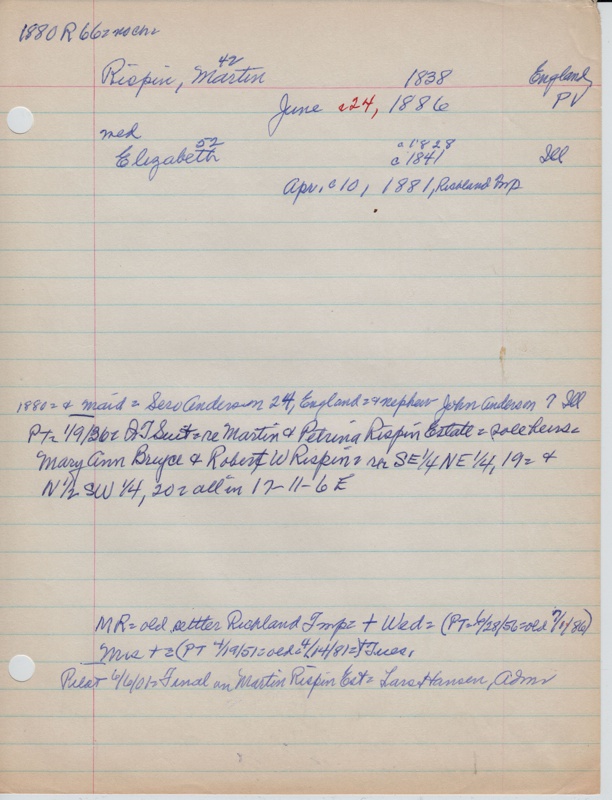 1880 R 66 = no ch =
42
Rispin, Martin 1838 England
June c24, 1886 PV
med
52 c 1828
Elizabeth c 1841 Ill
Apr. c 10, 1881, Richland Tmp
1880 = + maid = Anderson 24, England = + nephew John Anderson 7 Ill
PT = 1/9/36 = QT Suit = re Martin & Petrina Rispin Estate = sole heirs =
Mary Ann Bruyce & Robert W Rispin = re SE 1/4 NE 1/4, 19 = &
N 1/2 SW 1/4, 20 = all in 17-11-6 E
MR = old settler Richland Tmp = + Wed = (PT = 6/28/56 = old 7/1/86)
Mrs + = (PT 4/19/51 = old = 4/14/81 =) + Tues.
Pilot 6/6/01 = Final on Martin Rispin Est = Lars Hansen, Adm